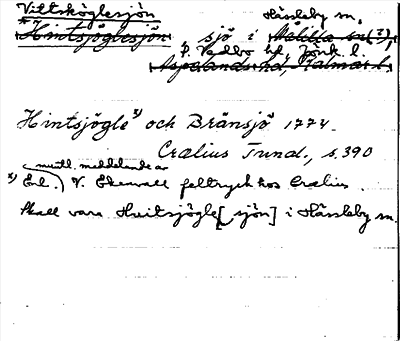 Vittsköglesjön
Hässleby sn,
*Hintsjöglesjön sjö i Målilla sn(?),
S. Vedbo hd, Jönk. l.
Aspelands hd, Kalmar l.
Hintsjögle x) och Bränsjö 1774
Crælius Tund., s. 390
muntl. meddelande av
x) Enl. V. Ekenvall feltryck hos Crælius.
Skall vara Hvitsjögle[sjön] i Hässleby sn.